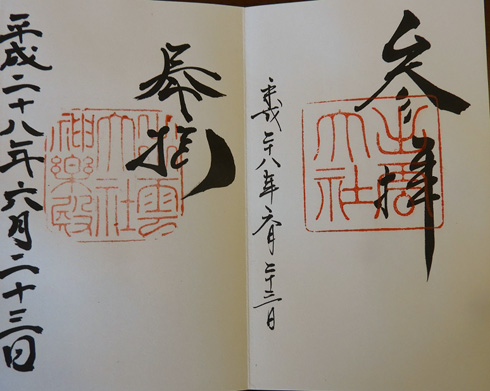 参拝
出雲大社
平成二十八年六月二十三日
奉拝
出雲大社神樂殿
平成二十八年六月二十三日